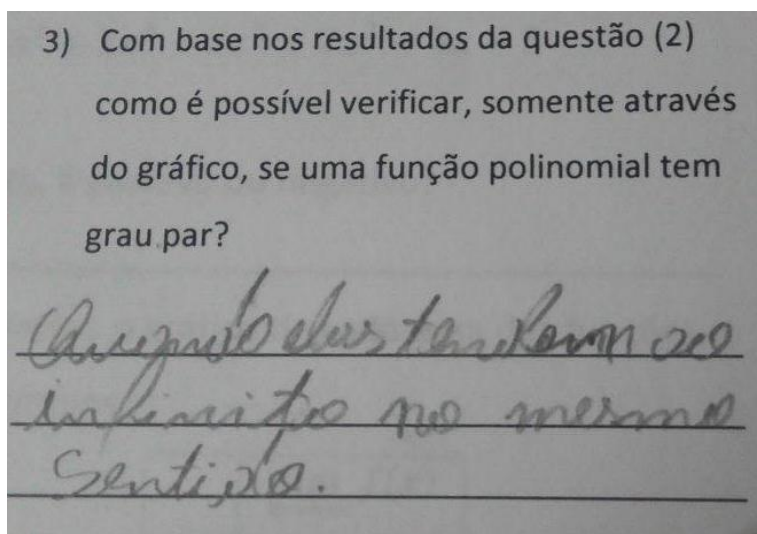 3) Com base nos resultados da questão (2)
como é possível verificar, somente através
do gráfico, se uma função polinomial tem
grau par?
Quando elas tendem ao
infinito no mesmo
sentido.